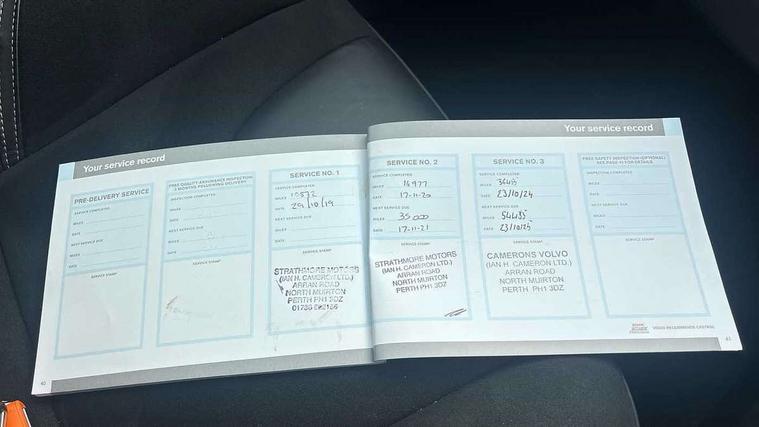 Your service record
PRE-DELIVERY SERVICE
SERVICE COMPLETED
MILES
DATE
NEXT SERVICE DUE
MILES
DATE
SERVICE STAMP
FREE QUALITY-ASSURANCE INSPECTION
3 MONTHS FOLLOWING DELIVERY
INSPECTION COMPLETED
MILES
DATE
NEXT SERVICE DUE
MILES
DATE
SERVICE STAMP
SERVICE NO. 1
SERVICE COMPLETED
MILES
DATE 29/10/19
NEXT SERVICE DUE
MILES
DATE
SERVICE STAMP
STRATHMORE MOTORS
(IAN H. CAMERON LTD.)
ARRAN ROAD
NORTH MUIRTON
PERTH PH1 3DZ
01738
40
Your service record
SERVICE NO. 2
SERVICE COMPLETED
MILES 16977
DATE 17-11-20
NEXT SERVICE DUE
MILES 35000
DATE 17-11-21
SERVICE STAMP
STRATHMORE MOTORS
(IAN H. CAMERON LTD.)
ARRAN ROAD
NORTH MUIRTON
PERTH PH1 3DZ
SERVICE NO. 3
SERVICE COMPLETED
MILES
DATE 23/10/24
NEXT SERVICE DUE
MILES
DATE 23/10/25
SERVICE STAMP
CAMERONS VOLVO
(IAN H. CAMERON LTD.)
ARRAN ROAD
NORTH MUIRTON
PERTH PH1 3DZ
FREE SAFETY INSPECTION (OPTIONAL)
SEE PAGE 11 FOR DETAILS
INSPECTION COMPLETED
MILES
DATE
NEXT SERVICE DUE
MILES
DATE
SERVICE STAMP
VOLVO RECOMMENDS CASTROL